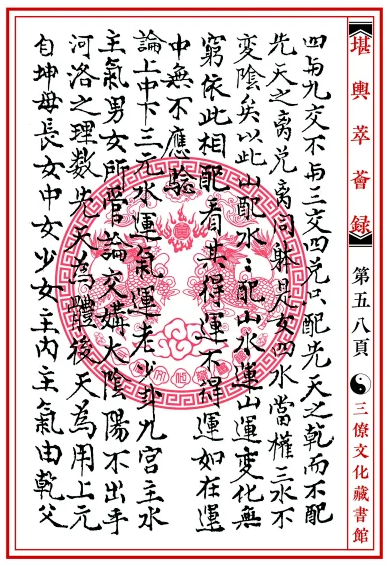 堪輿萃薈錄
第五八頁
三僚文化藏書館
四與九交不與三交四兑只配先天之乾而不配
先天之离兑离同躰是女四水當權三水不
变陰矣以此山配水水配山水運山運变化無
窮依此相配看其得運不得運如在運
中無不應驗
論上中下三元水運氣運老少卦九宮主水
主氣男女所管論交媾大陰陽不出乎
河洛之理数先天為體後天為用上元
自坤母長女中女少女主内主氣由乾父